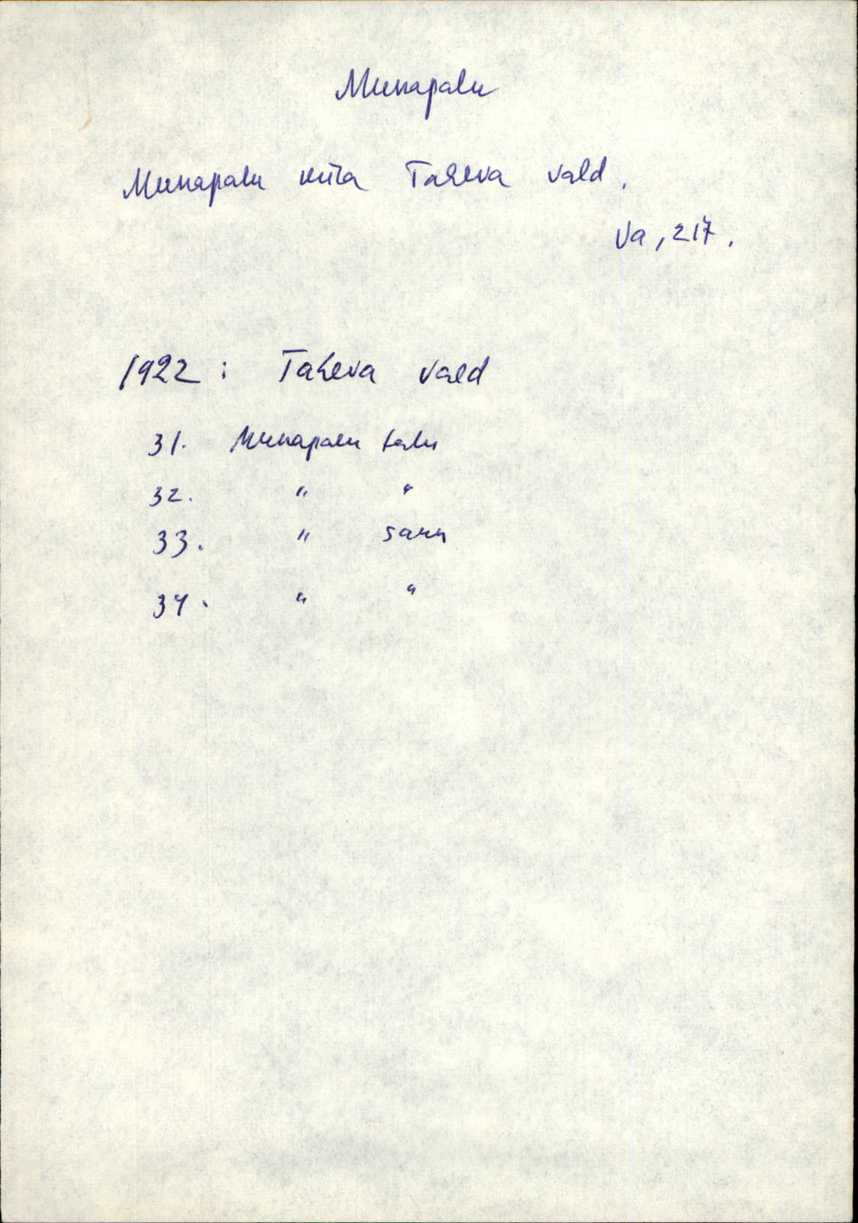 Munapalu
Munapalu küla Taheva vald.
Va, 217.
1922: Taheva vald
31. Munapalu talu
32. " "
33. " saun
34. " "